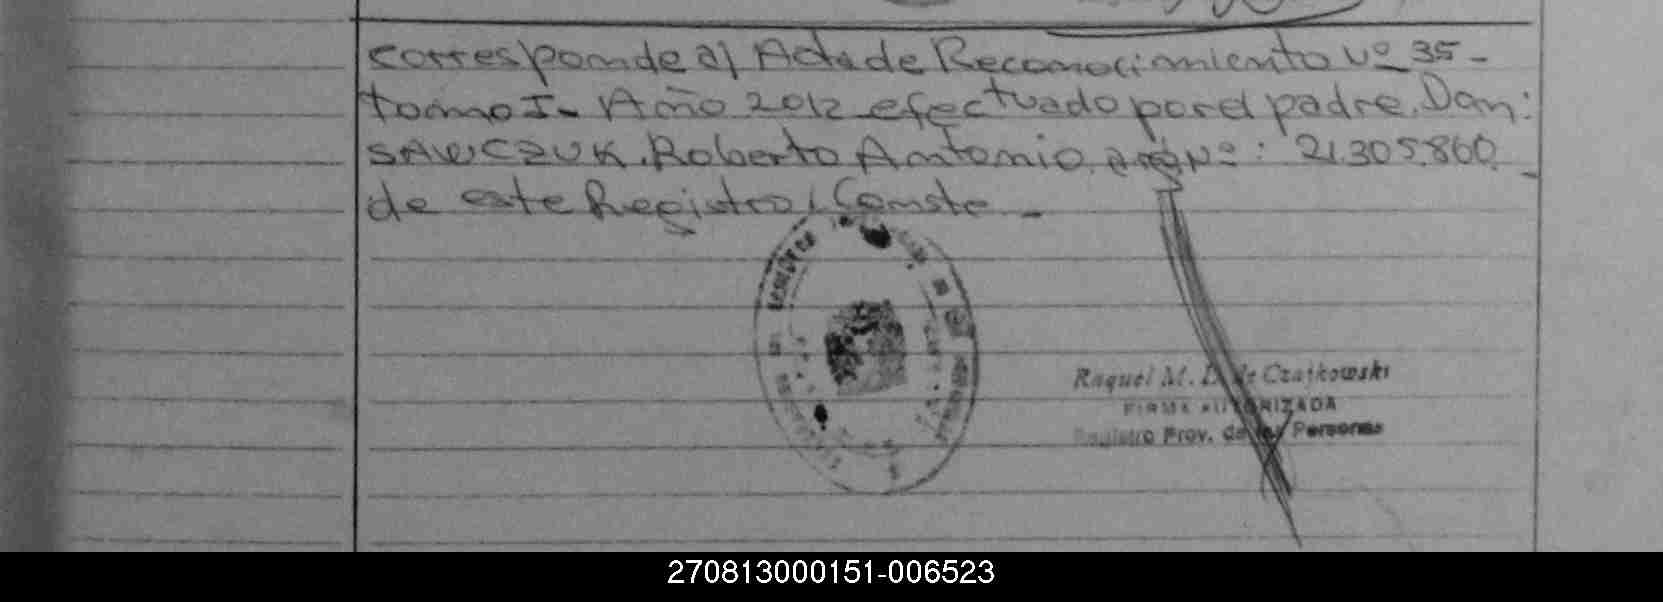 corresponde al Acta de Reconocimiento Nº 35-
tomo I- Año 2012 efectuado por el padre. Don:
SAWCZUK. Roberto Antonio. Nº: 21.305.860.
de este Registro, Conste -
Raquel M. D. de Czajkowski
FIRMA AUTORIZADA
Registro Prov. de las Personas
270813000151-006523